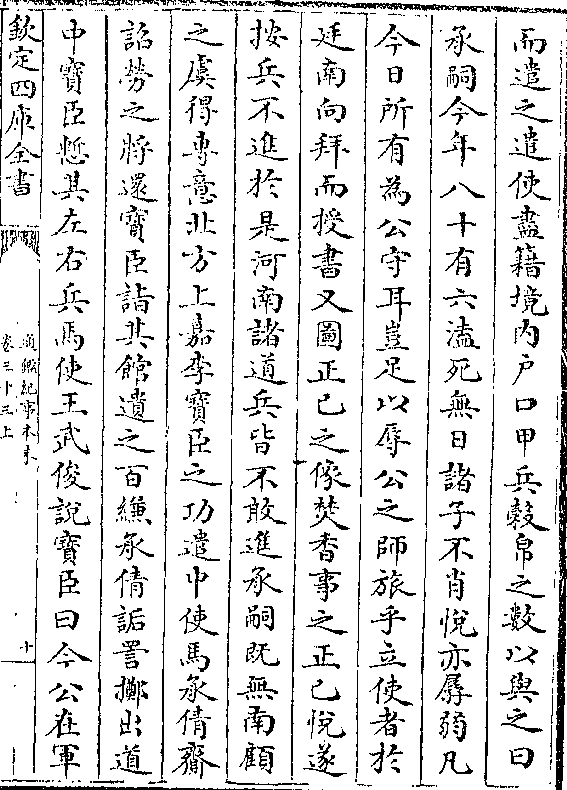 而遣之遣使盡籍境内户口甲兵榖帛之數以與之曰
承嗣今年八十有六溘死無日諸子不肖悅亦孱弱凡
今日所有為公守耳豈足以辱公之師旅乎立使者於
廷南向拜而授書又圖正己之像焚香事之正己悅遂
按兵不進於是河南諸道兵皆不敢進承嗣既無南顧
之虞得專意北方上嘉李寶臣之功遣中使馬承倩齎
詔勞之將還寶臣詣其館遺之百縑承倩詬詈擲出道
中寶臣慙其左右兵馬使王武俊說寶臣曰今公在軍
欽定四庫全書
通鑑紀事本末
卷三十三上
十